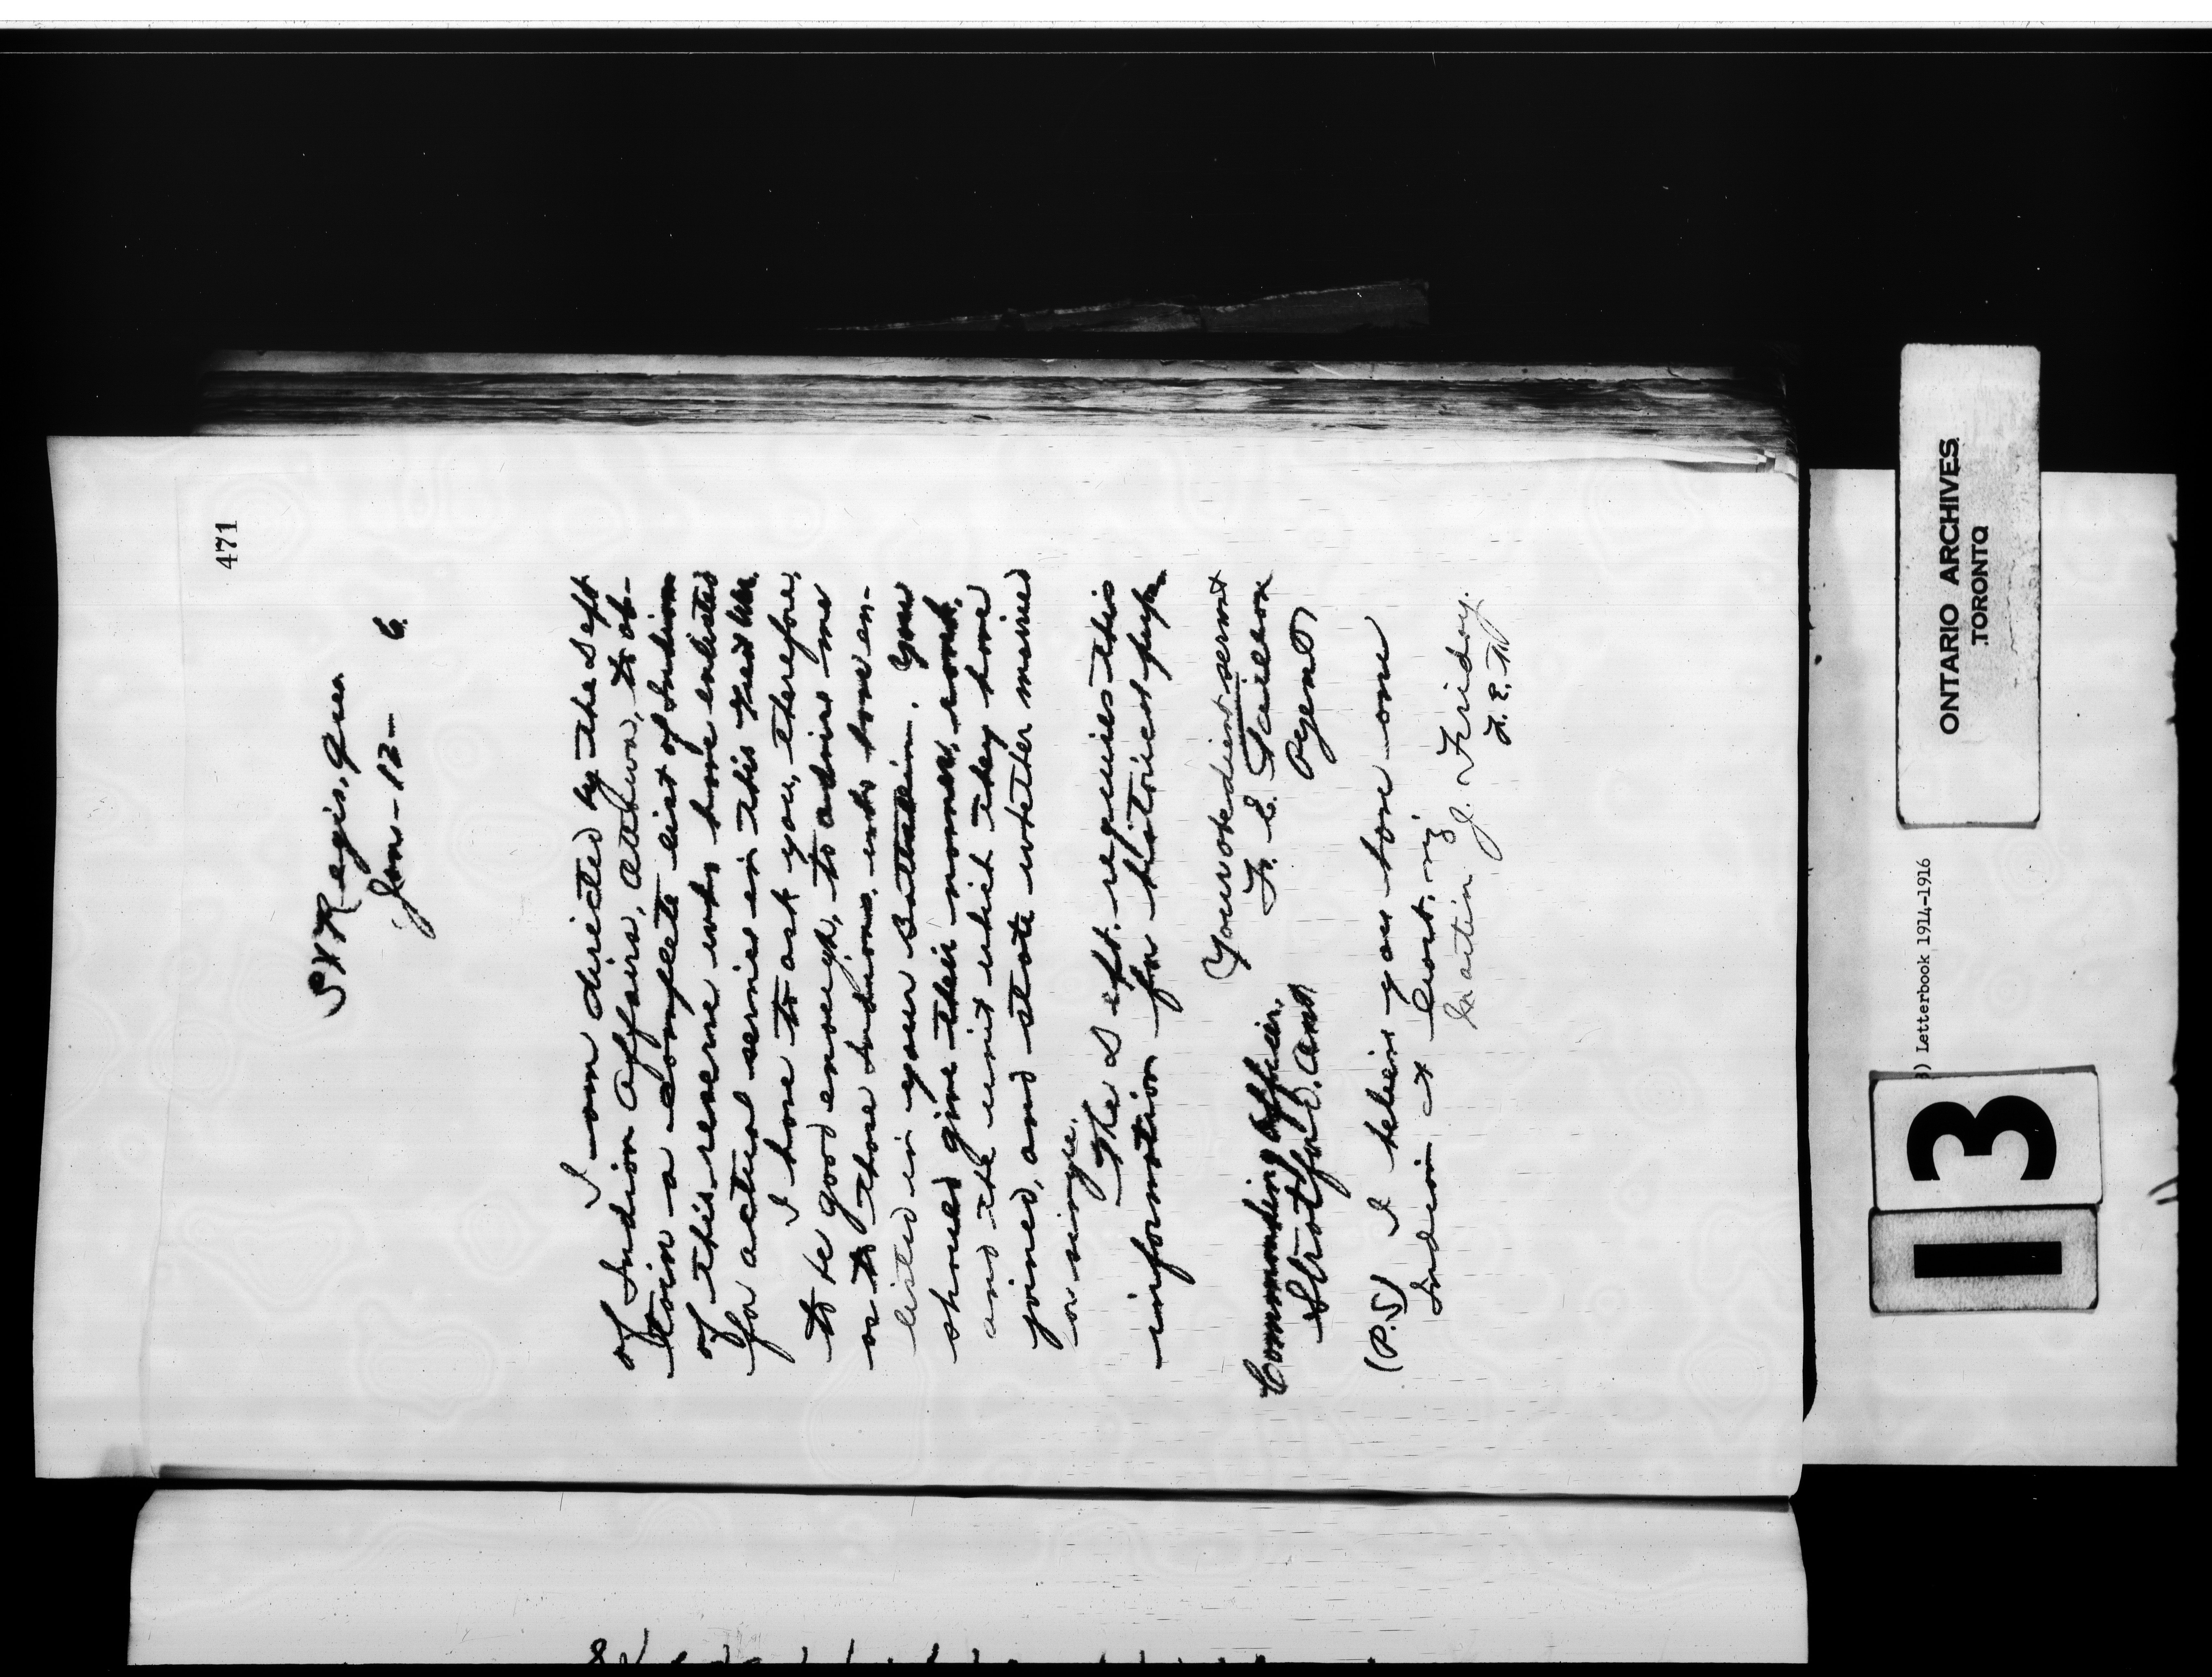 471
St Regis, Que
Jan - 12 - 6.
I am directed by the Dept
of Indian Affairs, Ottawa, to ob-
tain a complete list of Indians
of this reserve who have enlisted
for actual service in this
I have to ask you, therefore,
to be good enough, to advise me
as to those Indians, who have en-
listed in your Battalion. You
should give their names, 
and the unit which they have
joined, and state whether married
or single.
The Dept. requires this
information for historical purp.
Your obedient servant
F. E. Taillon
Agent
Commanding Officer,
Strathford. Ont.
(P.S) I believe you have one
Indian at least, viz
Martin J. Friday.
F. E. T.
ONTARIO ARCHIVES
TORONTO
3) Letterbook 1914-1916
13